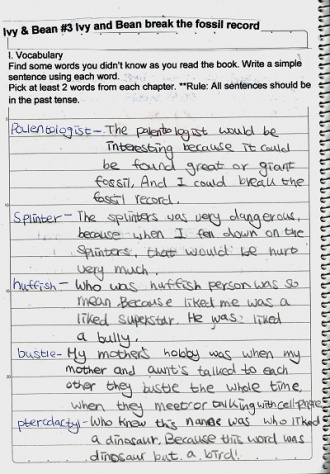 Ivy & Bean #3 Ivy and Bean break the fossil record
I. Vocabulary
Find some words you didn't know as you read the book. Write a simple
sentence using each word.
Pick at least 2 words from each chapter. **Rule: All sentences should be
in the past tense.
Palentologist - The palentologist would be
interesting because it could
be found great or giant
fossil, And I could break the
fossil record.
Splinter - The splinters was very dangerous,
because when I fell down on the
splinters, that would be hurt
very much.
huffish - Who was huffish person was so
mean. Because liked me was a
liked superstar. He was liked
a bully.
bustle - My mother's hobby was when my
mother and aunt's talked to each
other they bustle the whole time,
when they meet or talking with cell phone
pterodactyl - Who knew this name was who liked
a dinosaur. Because this word was
dinosaur but a bird!